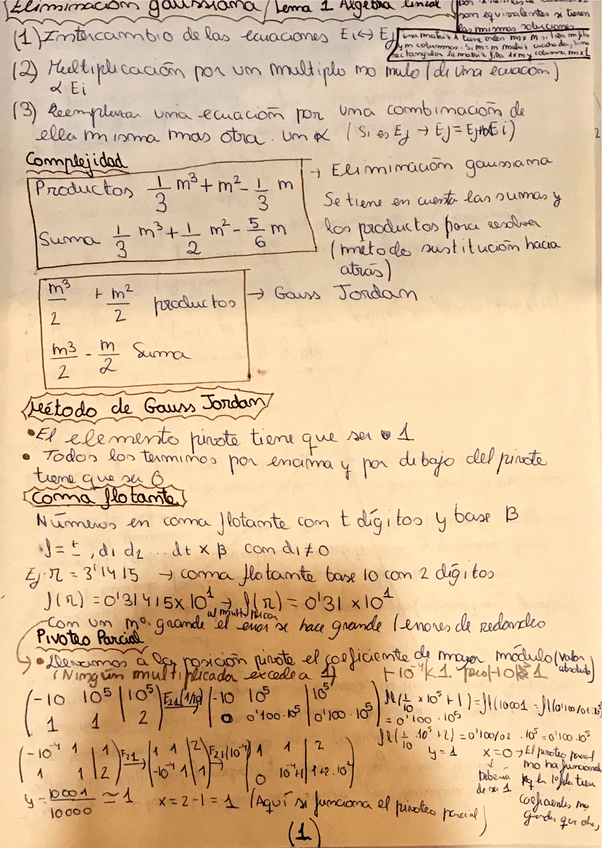 Eliminación gaussiana / Tema 1 Algebra lineal
son equivalentes si tienen
las mismas soluciones
(1) Intercambio de las ecuaciones Ei ↔ Ej
una matriz A tiene orden m x n si tiene m filas
y n columnas. Si m = n matriz cuadrada, sino
rectangular
(2) Multiplicación por un multiplo no nulo (de una ecuación)
α Ei
(3) Reemplazar una ecuación por una combinación de
ella misma mas otra. un α (Si es Ej → Ej = Ej+αEi)
Complejidad
Productos 1/3 m³ + m² - 1/3 m
Suma 1/3 m³ + 1/2 m² - 5/6 m
→ Eliminación gaussiana
Se tiene en cuenta las sumas y
los productos para resolver
(metodo sustitución hacia
atrás)
m³/2 + m²/2 productos → Gauss Jordan
m³/2 - m/2 Suma
Método de Gauss Jordan
• El elemento pivote tiene que ser 1
• Todos los terminos por encima y por debajo del pivote
tiene que ser 0
Coma flotante
Números en coma flotante con t dígitos y base B
f = ± , d1 d2 ... dt x β con d1 ≠ 0
Ej: π = 3'1415 → coma flotante base 10 con 2 dígitos
f(π) = 0'31415x10¹ → f(π) = 0'31 x10¹
al multiplicar
con un nº grande el error se hace grande / errores de redondeo
Pivoteo Parcial
• Llevamos a la posición pivote el coeficiente de mayor módulo (valor
absoluto)
(Ningún multiplicador excede a 1)
(-10 10⁵ | 10⁵
1 1 | 2) F21(1/10) (-10 10⁵ | 10⁵
0 0'100·10⁵ | 0'100·10⁵)
fl(1/10 x10⁵ + 1) = fl(10001)
= 0'100·10⁵
= 0'100·10⁵
y = 1 x = 0 → El pivoteo parcial
no ha funcionado
Debería
de ser 1
coeficientes mas
grandes que
(-10⁻⁴ 1 | 1
1 1 | 2) F21 (1 1 | 2
-10⁻⁴ 1 | 1) F21(10⁻⁴) (1 1 | 2
0 10⁻⁴+1 | 1+2·10⁻⁴)
y = 10001/10000 ≃ 1 x = 2-1 = 1 (Aquí si funciona el pivoteo parcial)
(1)